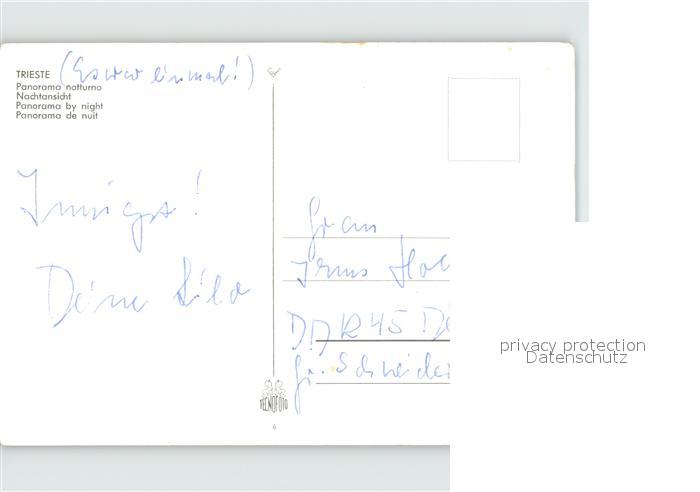 TRIESTE (Es war einmal!)
Panorama notturno
Nachtansicht
Panorama by night
Panorama de nuit
Innigst!
Deine
Frau
DDR 45
Gr. Schneider
TECNOFOTO
6
privacy protection
Datenschutz